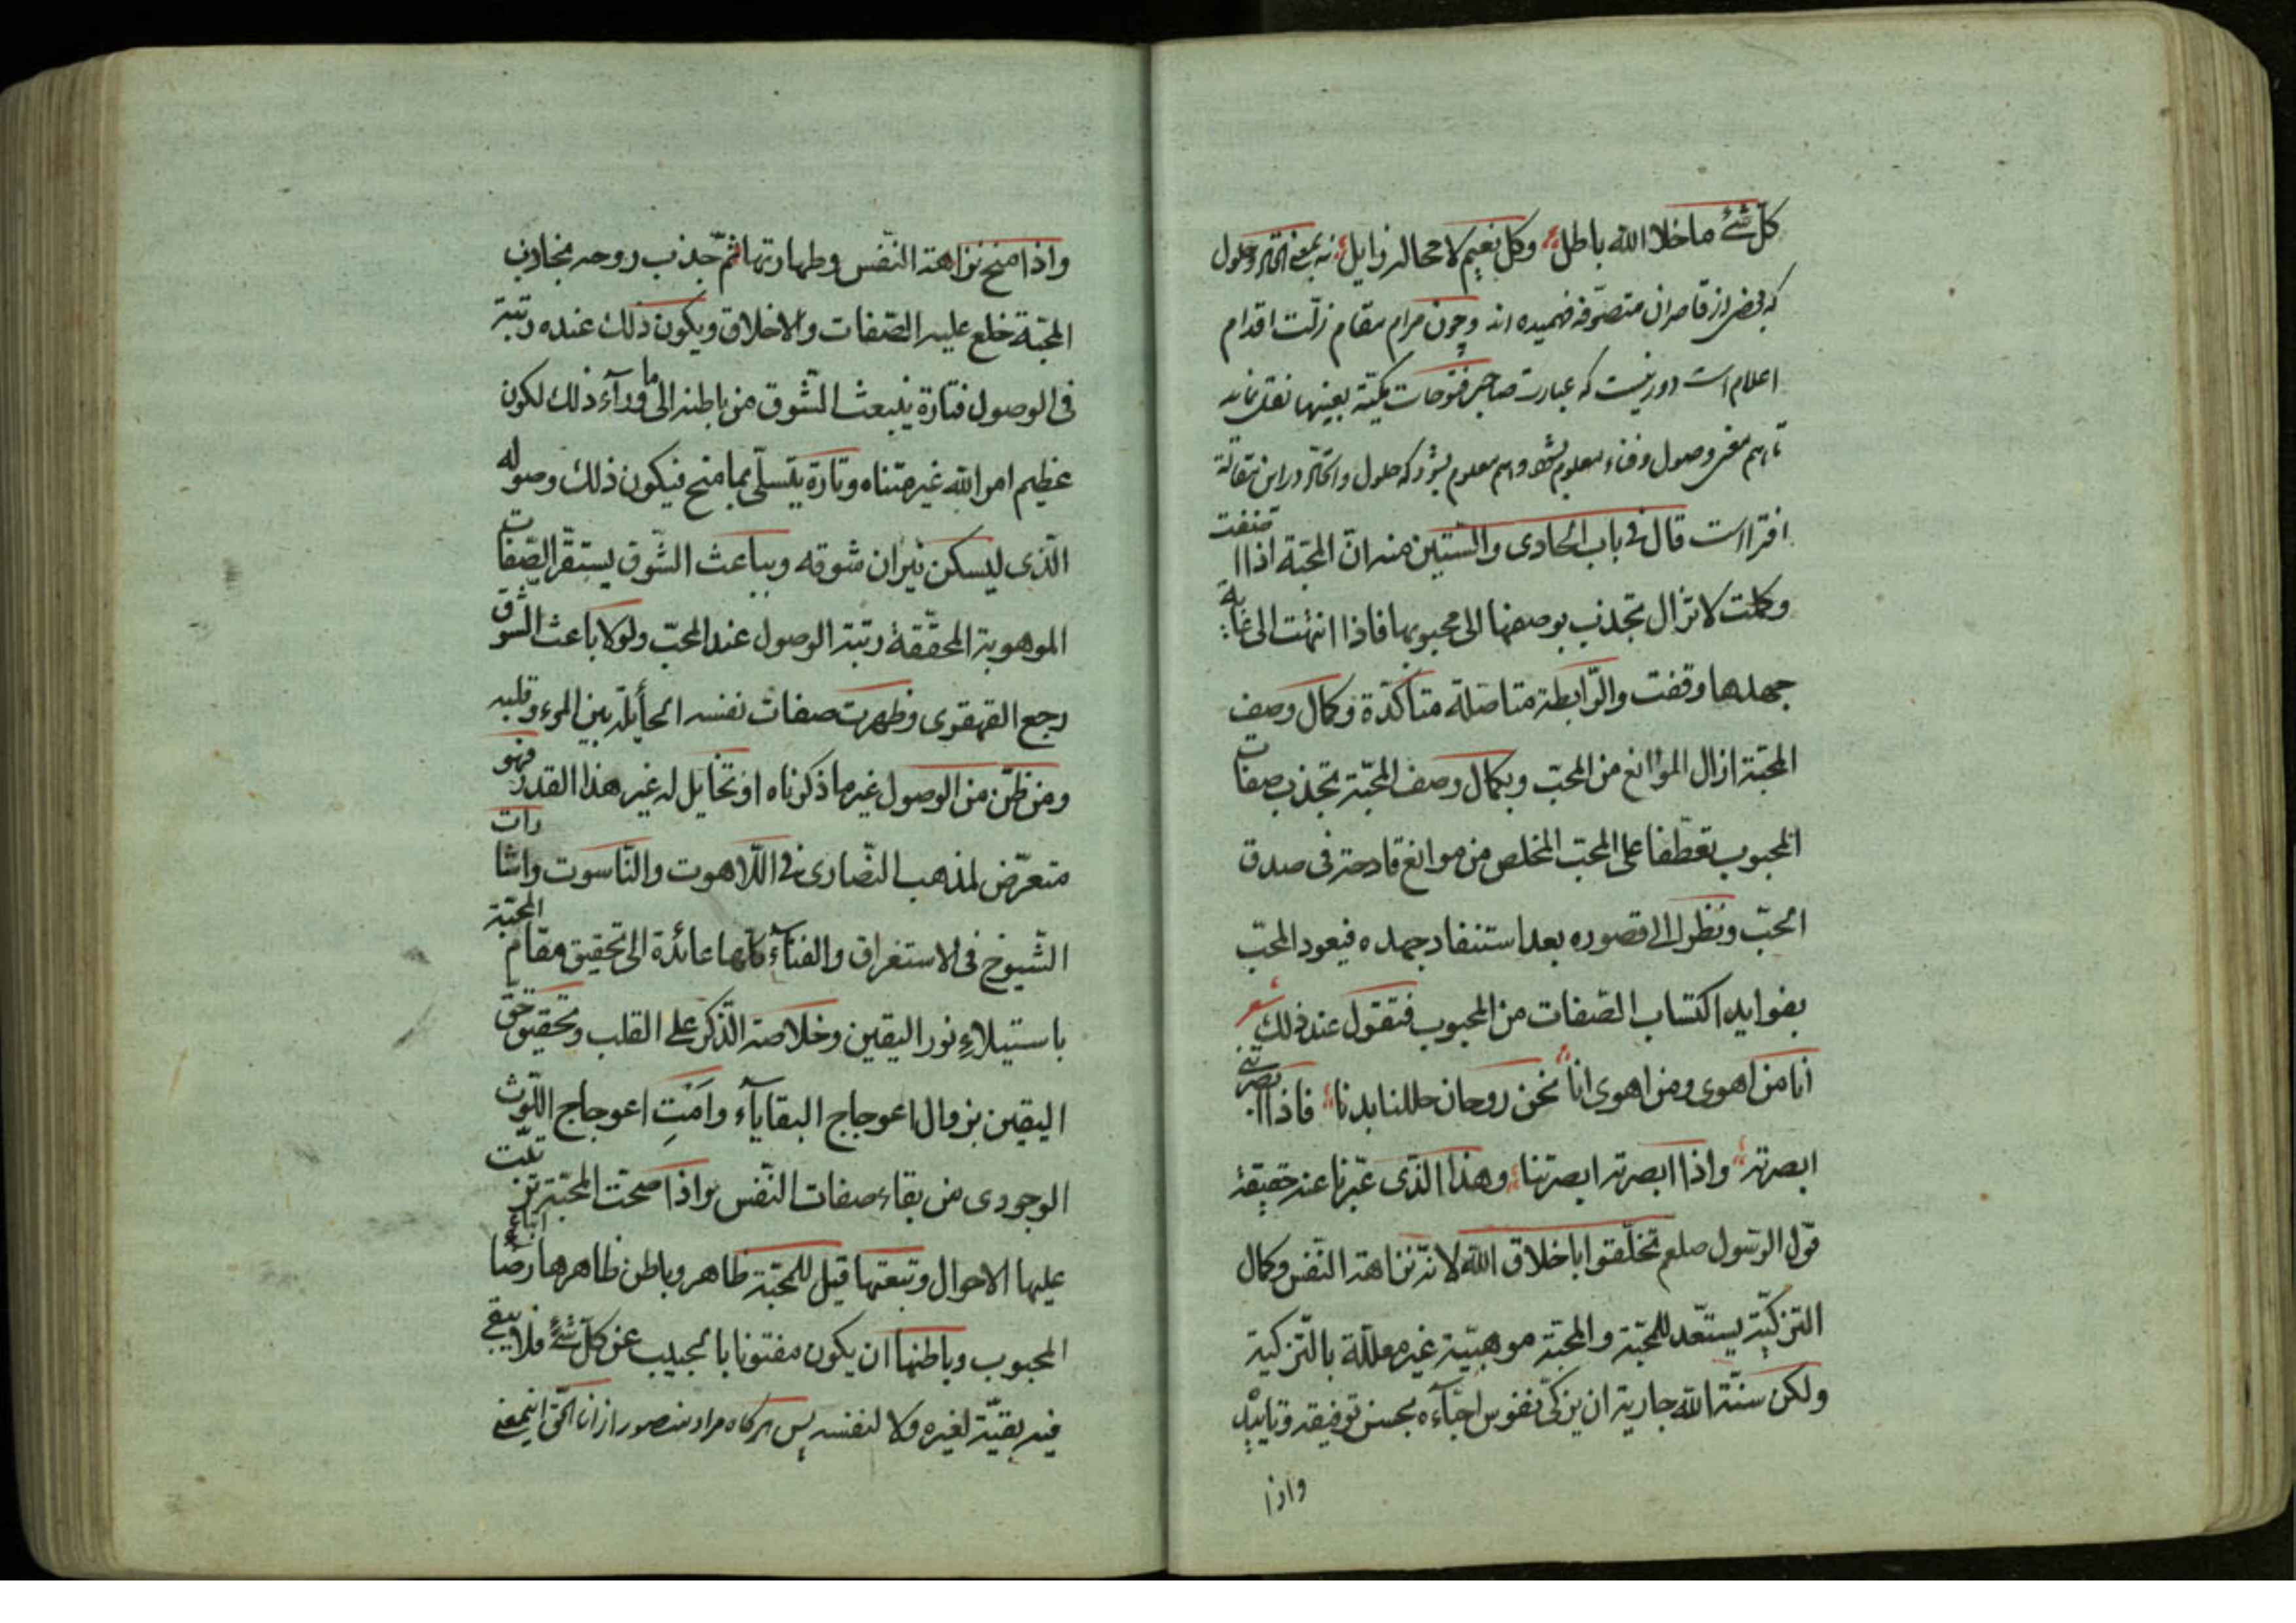 كلّ شئ ما خلا الله باطل وكل نعيم لا محاله زايل نه بمعنى اتحاد و حلول
كه بعضى از قاصران متصوّفه فهميده اند و چون مرام مقام زلّت اقدام
اعلام است دور نيست كه عبارت صاحب فتوحات مكيّة بعينها نقل نمايد
تا هم معنى وصول و فناء معلوم شود و هم معلوم شود كه حلول و اتحاد در اين مقاله
افترا است قال فى باب الحادى والستّين منه انّ المحبّة اذا صنفت
وكملت لا تزال تجذب بوصفها الى محبوبها فاذا انتهت الى غاية
جهدها وقفت والرّابطة متاصّلة متأكدّة وكمال وصف
المحبّة ازال الموانع من المحبّ وبكمال وصف المحبّة تجذب صفات
المحبوب تعطّفا على المحبّ المخلص من موانع قادحة فى صدق
الحبّ ونظرا الى قصوره بعد استنفاد جهده فيعود المحبّ
بفوايد اكتساب الصّفات من المحبوب فتقول عند ذلك شعر
أنا من اهوى ومن اهوى انا نحن روحان حللنا بدنا فاذا ابصرتنى
ابصرته واذا ابصرته ابصرتنا وهذا الّذى عبّرنا عنه حقيقة
قول الرّسول صلعم تخلّقوا باخلاق الله لانّه بنزاهة النّفس وكمال
التزكيّة يستعّد للمحبّة والمحبّة موهبيّة غير معلّلة بالتّزكية
ولكن سنّة الله جارية ان يزكّى نفوس احبّآءه بحسن توفيقه وتاييده
واذا
واذا منح نزاهة النّفس وطهارتها ثمّ جذب روحه بجاذب
المحبّة خلع عليه الصّفات والاخلاق ويكون ذلك عنده رتبة
فى الوصول فتارة ينبعث الشّوق من باطنه الى ما ورآء ذلك لكون
عظيم امر الله غير متناه وتارة يتسلّى بما منح فيكون ذلك وصوله
الّذى ليسكن نيران شوقه وبباعث الشّوق يستقرّ الصّفات
الموهوبة المحقّقة رتبة الوصول عند المحبّ ولولا باعث الشّوق
رجع القهقرى وظهرت صفات نفسه الحأيلة بين المرء وقلبه
ومن ظنّ من الوصول غير ما ذكرناه او تخايل له غير هذا القدر فهو
متعرّض لمذهب النّصارى فى اللّاهوت والنّاسوت واشارات
الشّيوخ فى الاستغراق والفنآء كلّها عائدة الى تحقيق مقام المحبّة
باستيلاءِ نور اليقين وخلاصة الذّكر على القلب وتحقيق حقّ
اليقين بزوال اعوجاج البقايآء وامنتِ اعوجاج اللّوث
الوجودى من بقاء صفات النّفس واذا صحّت المحبّة ترتّبت
عليها الاحوال وتبعتها قيل للمحبّة ظاهر وباطن ظاهرها اتباع رضا
المحبوب وباطنها ان يكون مفتونا بالحبيب عن كلّ شئ فلا يبقى
فيه بقيّة لغيره ولا لنفسه پس هرگاه مراد منصور از انا الحق اينمعنى